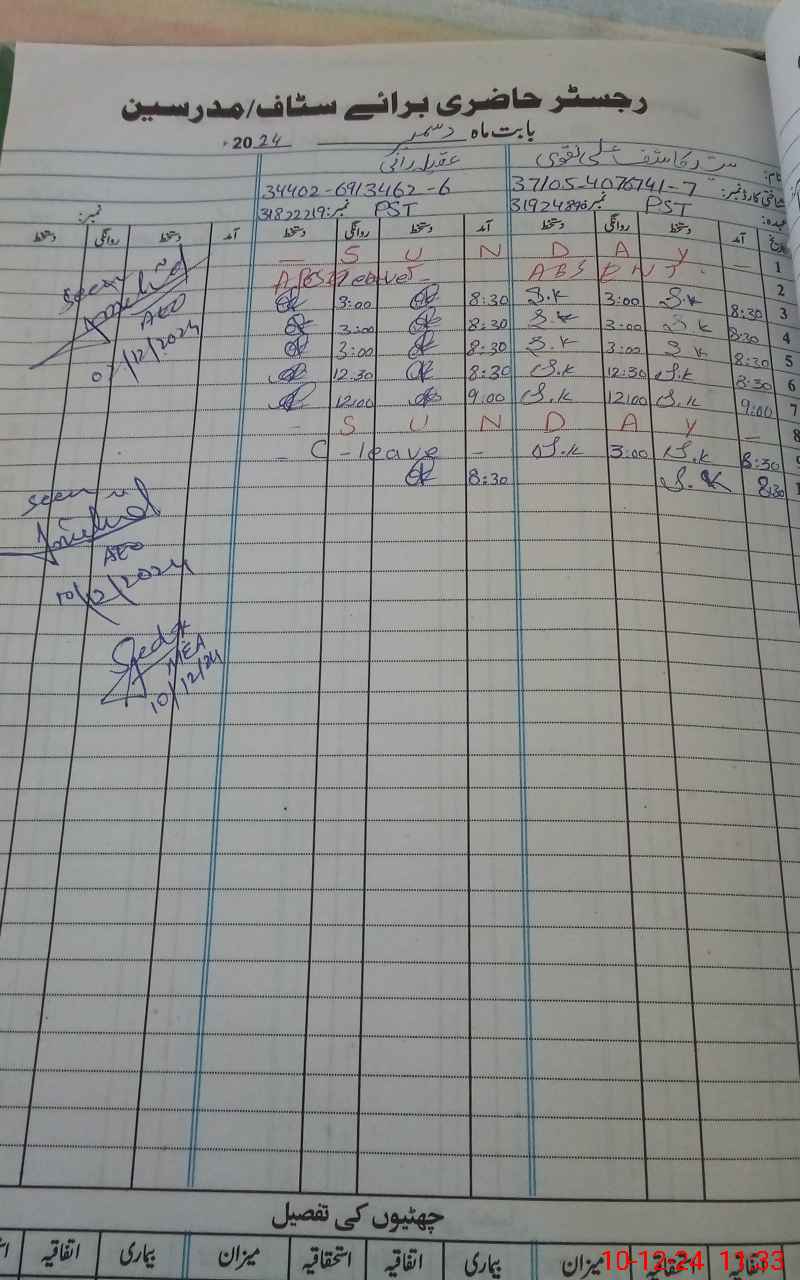 رجسٹر حاضری برائے سٹاف/مدرسین
بابت ماہ دسمبر 2024ء
نام: سید کاشف علی نقوی عقیلہ رانی
شناختی کارڈ نمبر: 37105-4076741-7 34402-6913462-6
عہدہ: PST نمبر: PST نمبر: 31822219 نمبر:
تاریخ آمد دستخط روانگی دستخط آمد دستخط روانگی دستخط آمد دستخط روانگی دستخط
1 — Y A D N U S —
2 ABSENT. leave
3 8:30 S.K 3:00 S.K 8:30 3:00
4 8:30 S.K 3:00 S.K 8:30 3:00
5 8:30 S.K 3:00 S.K 8:30 3:00
6 8:30 S.K 12:30 S.K 8:30 12:30
7 9:00 S.K 12:00 S.K 9:00 12:00
8 — Y A D N U S -
9 8:30 S.K 3:00 S.K - C-leave -
8:30 S.K 8:30
seen
AEO
/12/2024
seen
AEO
10/12/2024
MEA
10/12/24
چھٹیوں کی تفصیل
اتفاقیہ استحقاقیہ میزان بیماری اتفاقیہ استحقاقیہ میزان بیماری اتفاقیہ
10-12-24 11:33